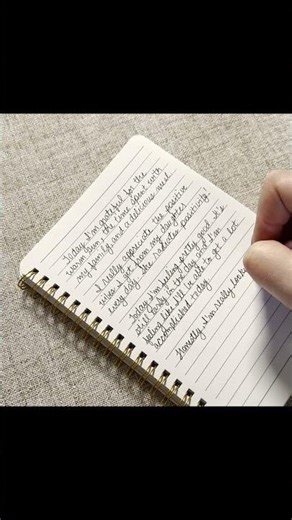 Today I'm grateful for the
warm sun, the time spent with
my family and a delicious meal
I really appreciate the positive
vibes I get from my daughter
every day. She radiates positivity!
Today I'm feeling pretty good. It's
still early in the day and I'm
feeling like I'll be able to get a lot
accomplished today.
Honestly, I'm really look